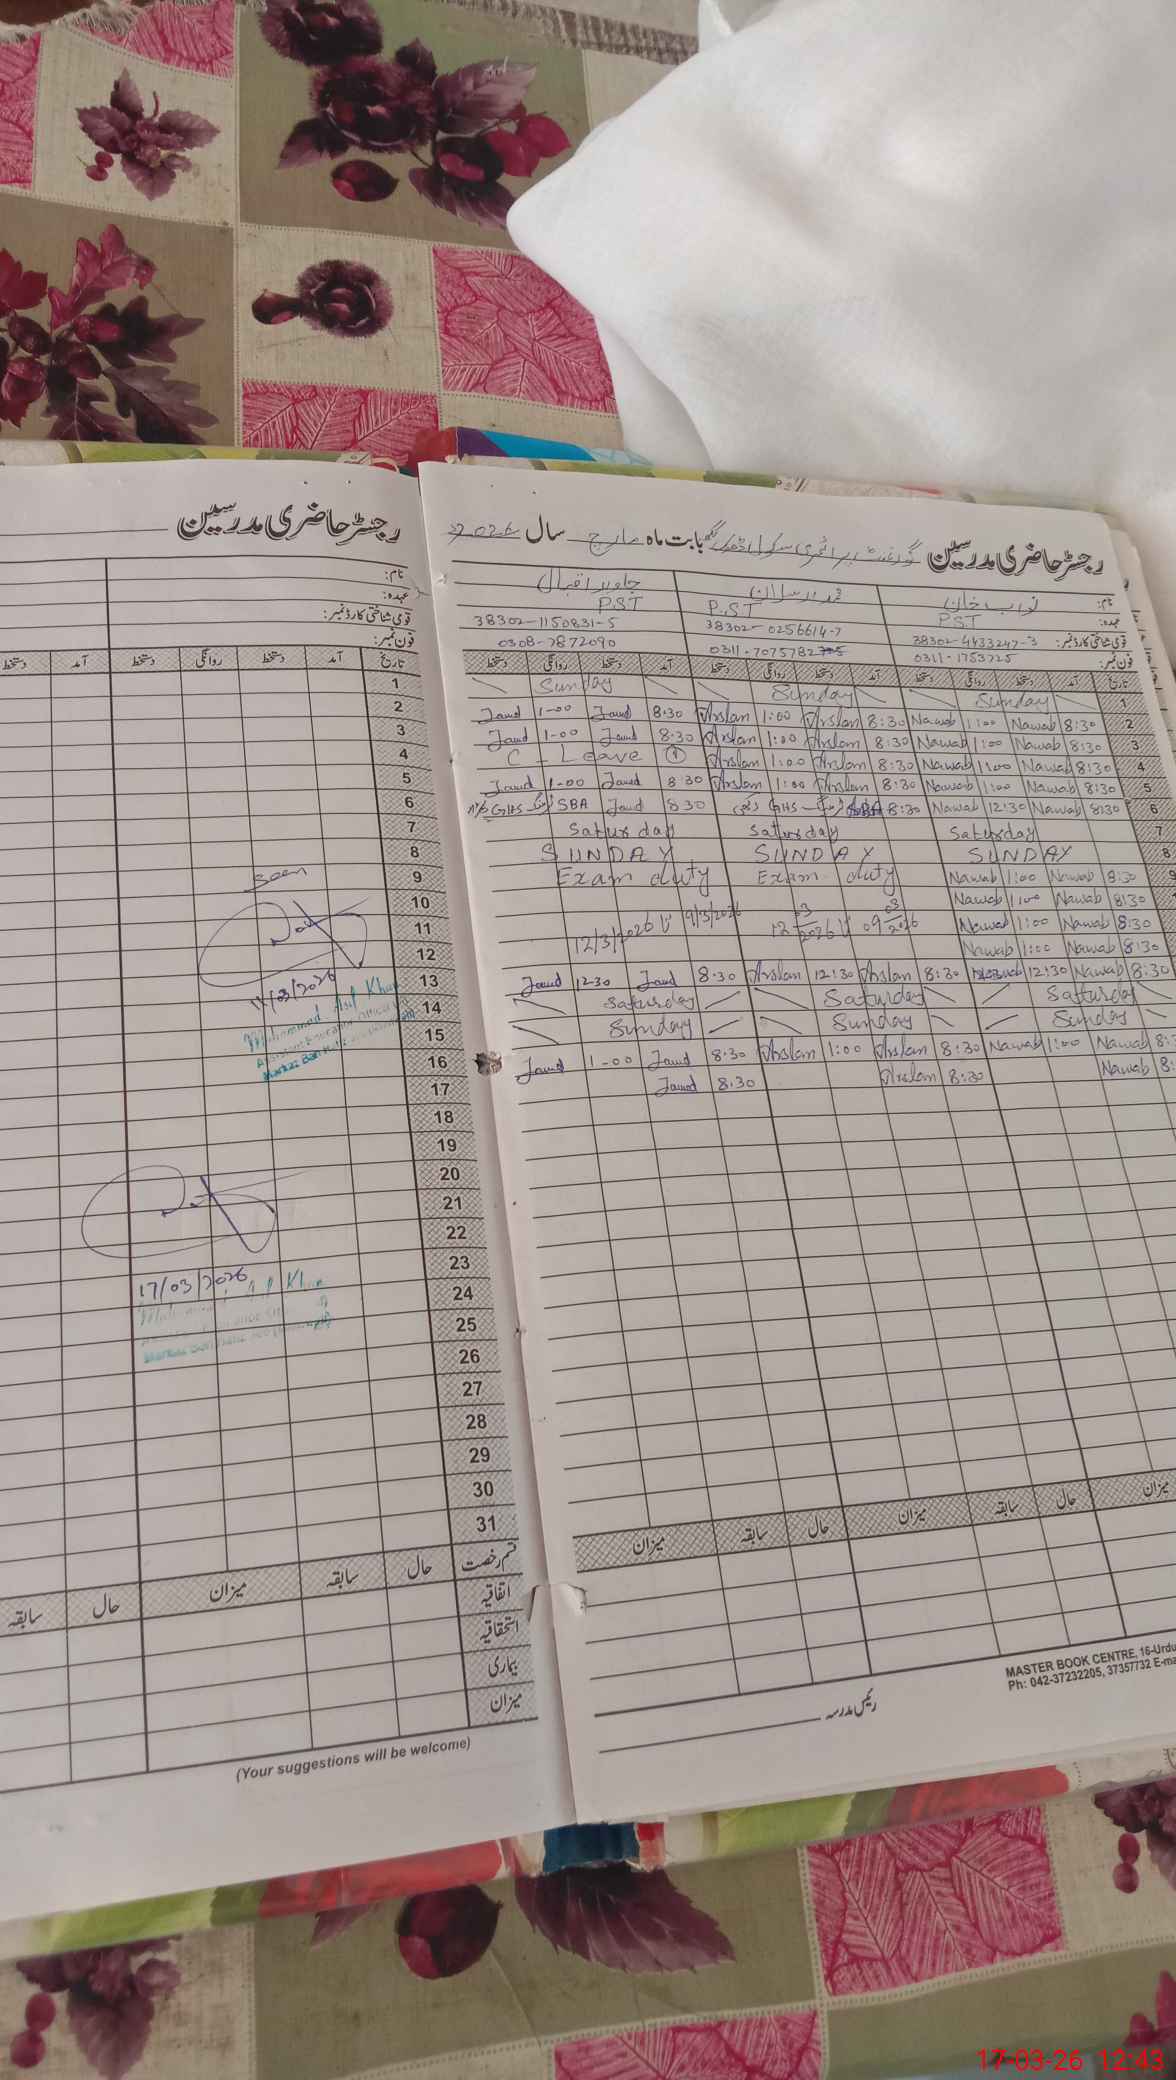 رجسٹر حاضری مدرسین گورنمنٹ پرائمری سکول بابت ماہ مارچ سال 2026ء
نام: نواب خان محمد ارسلان جاوید اقبال
عہدہ: P.ST P.ST P.ST
قومی شناختی کارڈ نمبر: 38302-4433247-3 38302-0256614-7 38302-1150831-5
فون نمبر: 0311-1753725 0311-7075782 0308-7872090
تاریخ آمد دستخط روانگی دستخط آمد دستخط روانگی دستخط آمد دستخط روانگی دستخط
1 Sunday Sunday Sunday
2 8:30 Nawab 1:00 Nawab 8:30 Arslan 1:00 Arslan 8:30 Javed 1-00 Javed
3 8:30 Nawab 1:00 Nawab 8:30 Arslan 1:00 Arslan 8:30 Javed 1-00 Javed
4 8:30 Nawab 1:00 Nawab 8:30 Arslan 1:00 Arslan C - Leave 1
5 8:30 Nawab 1:00 Nawab 8:30 Arslan 1:00 Arslan 8:30 Javed 1-00 Javed
6 8:30 Nawab 12:30 Nawab 8:30 SBA GHS 8:30 Javed SBA GHS
7 Saturday Saturday Saturday
8 SUNDAY SUNDAY SUNDAY
9 8:30 Nawab 1:00 Nawab Exam duty Exam duty
8:30 Nawab 1:00 Nawab 09/03/2026 تا 12/03/2026 9/3/2026 تا 12/3/2026
8:30 Nawab 1:00 Nawab
8:30 Nawab 1:00 Nawab
8:30 Nawab 12:30 Nawab 8:30 Arslan 12:30 Arslan 8:30 Javed 12-30 Javed
Saturday Saturday Saturday
Sunday Sunday Sunday
Nawab 1:00 Nawab 8:30 Arslan 1:00 Arslan 8:30 Javed 1-00 Javed
Nawab 8:30 Arslan 8:30 Javed
میزان حال سابقہ میزان حال سابقہ میزان
رئیس مدرسہ
MASTER BOOK CENTRE, 16-Urdu
Ph: 042-37232205, 37357732 E-ma
رجسٹر حاضری مدرسین
نام:
عہدہ:
قومی شناختی کارڈ نمبر:
فون نمبر:
تاریخ آمد دستخط روانگی دستخط آمد دستخط
1
2
3
4
5
6
7
8
9 Seen
10
11
12
13 11/03/2026
14 Muhammad Asif Khan
15 Assistant Education Officer
16 Markaz
17
18
19
20
21
22
23 17/03/2026
24 Muhammad Asif Khan
25
26
27
28
29
30
31
قسم رخصت حال سابقہ میزان حال سابقہ
اتفاقیہ
استحقاقیہ
بیماری
میزان
(Your suggestions will be welcome)
17-03-26 12:43